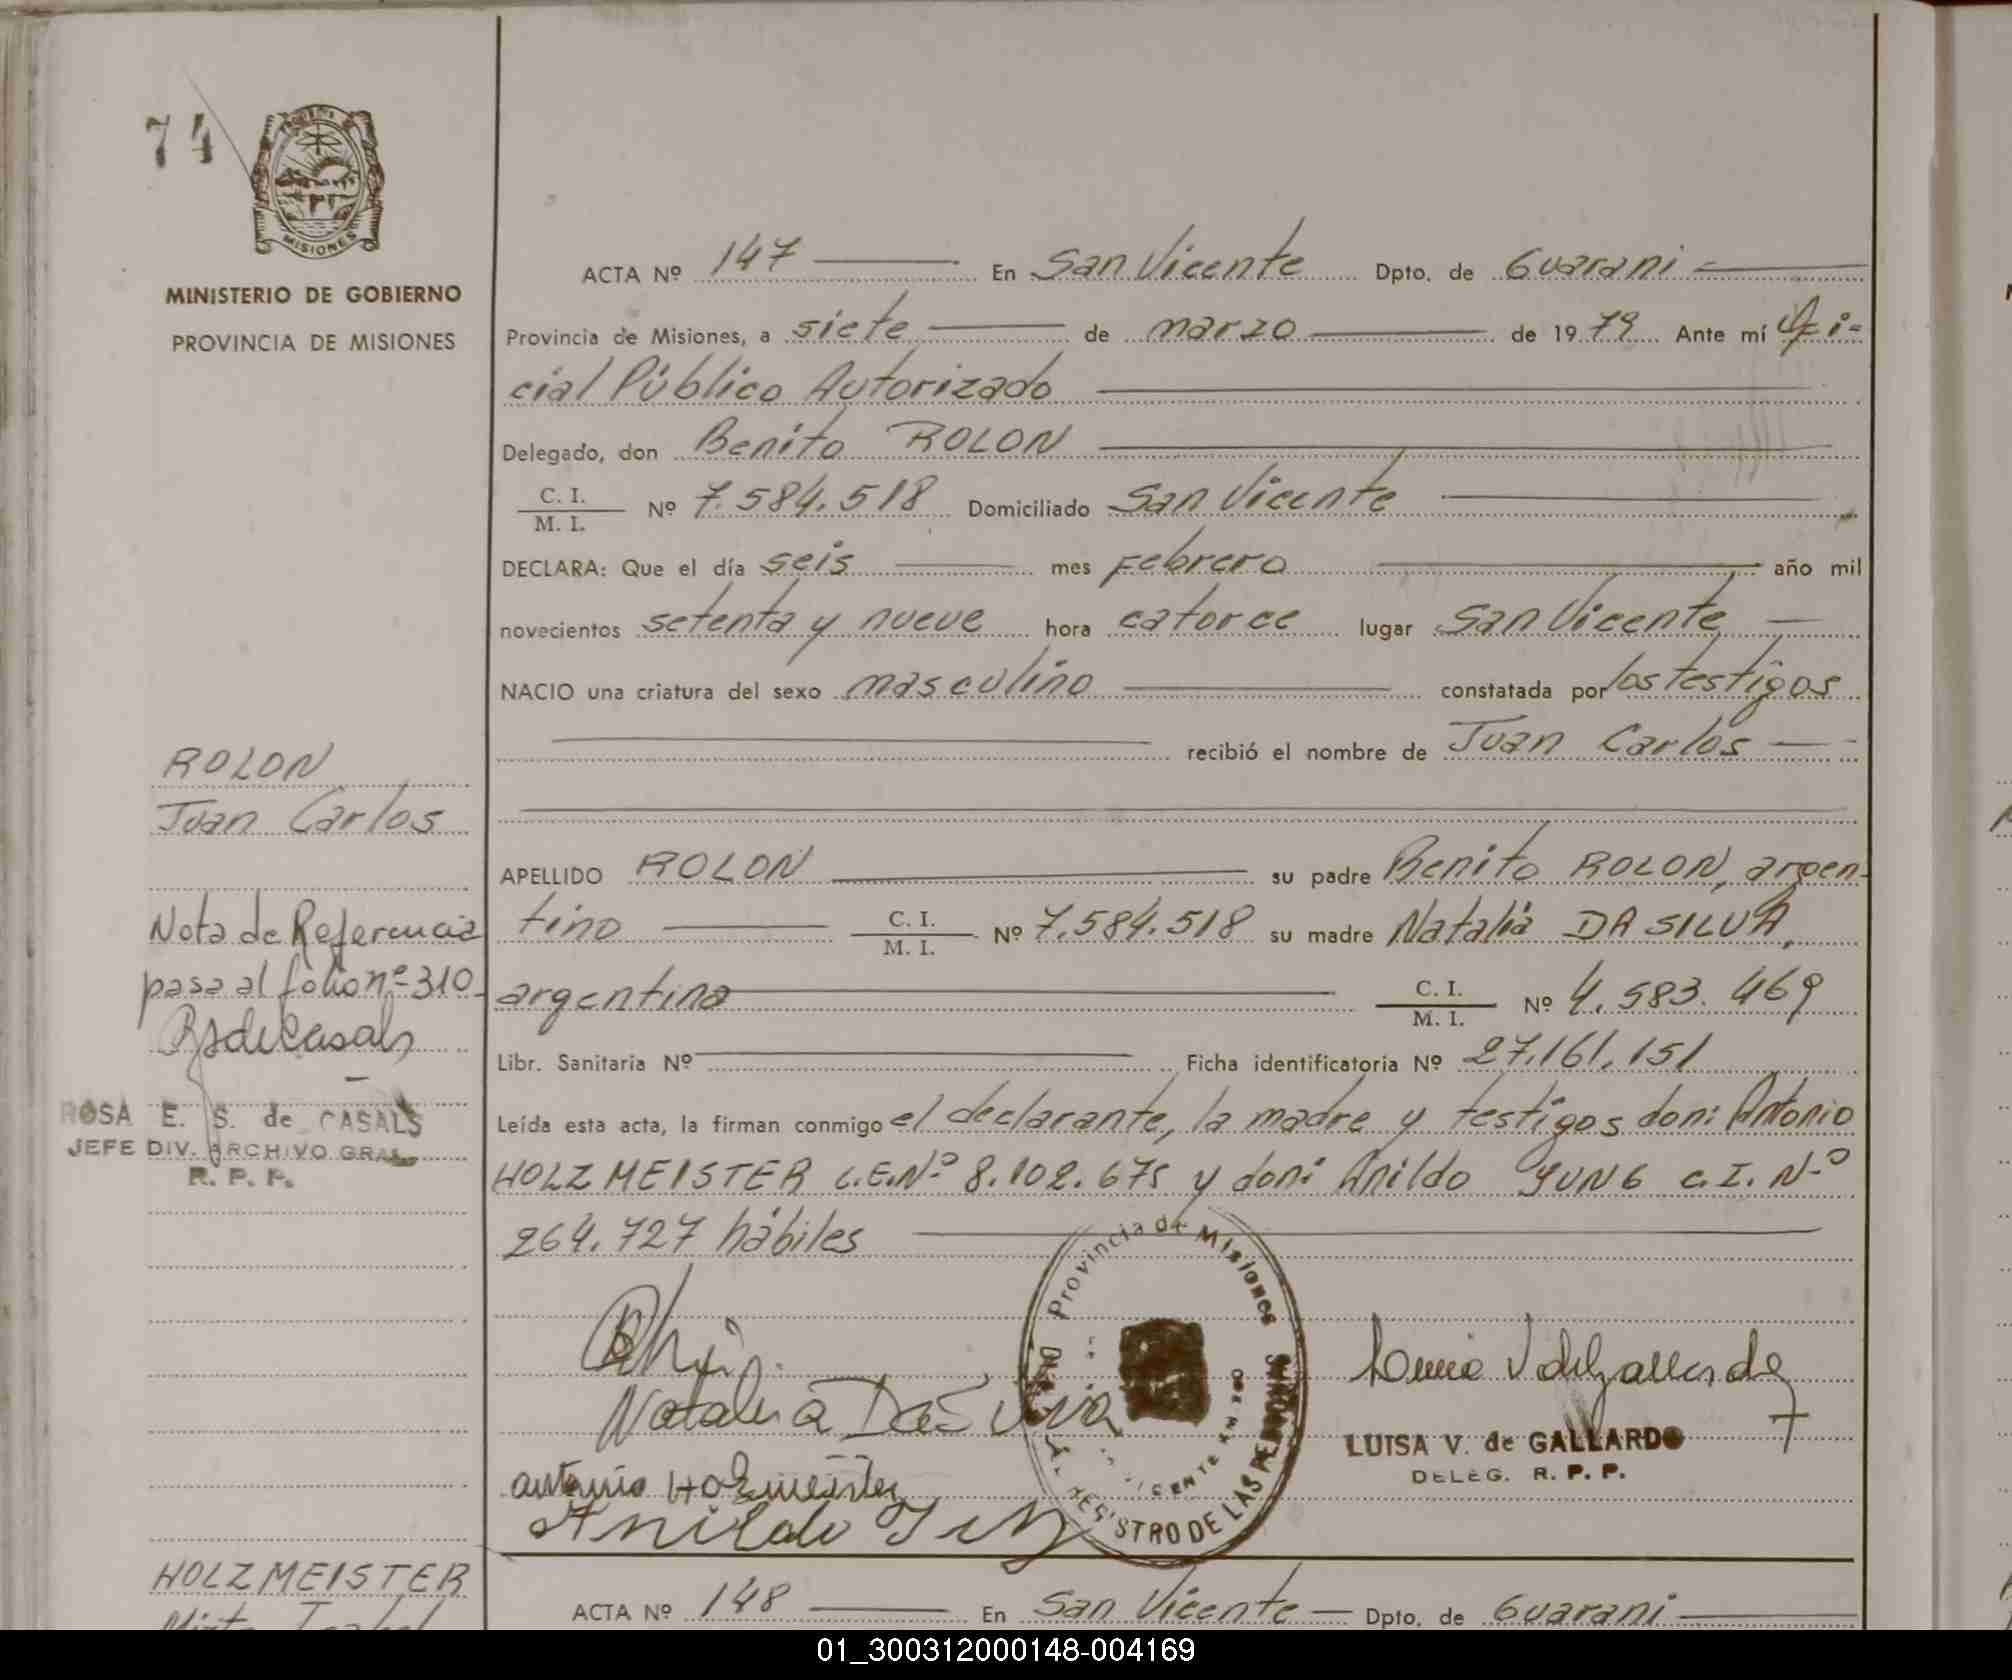 74
MISIONES
MINISTERIO DE GOBIERNO
PROVINCIA DE MISIONES
ACTA Nº 147 En San Vicente Dpto. de Guarani
Provincia de Misiones, a siete de marzo de 1979 Ante mí Ofi=
cial Público Autorizado
Delegado, don Benito ROLON
C. I.
M. I. Nº 7.584.518 Domiciliado San Vicente
DECLARA: Que el día seis mes Febrero año mil
novecientos setenta y nueve hora catorce lugar San Vicente
NACIO una criatura del sexo masculino constatada por los testigos
recibió el nombre de Juan Carlos
ROLON
Juan Carlos
APELLIDO ROLON su padre Benito ROLON, argen-
tino C. I.
M. I. Nº 7.584.518 su madre Natalia DA SILVA,
argentina C. I.
M. I. Nº 4.583.469
Libr. Sanitaria Nº Ficha identificatoria Nº 27.161.151
Leída esta acta, la firman conmigo el declarante, la madre y testigos don: Antonio
HOLZMEISTER L.E.Nº 8.102.675 y don: Anildo YUNG C.I. Nº
264.727 hábiles
Nota de Referencia
pasa al folio nº 310
ROSA E. S. de CASALS
JEFE DIV. ARCHIVO GRAL
R. P. P.
Natalia Da Silva
Antonio Holzmeister
Anildo
Provincia de Misiones
REGISTRO DE LAS PERSONAS
LUISA V. de GALLARDO
DELEG. R. P. P.
HOLZMEISTER
ACTA Nº 148 En San Vicente Dpto. de Guarani
01_300312000148-004169